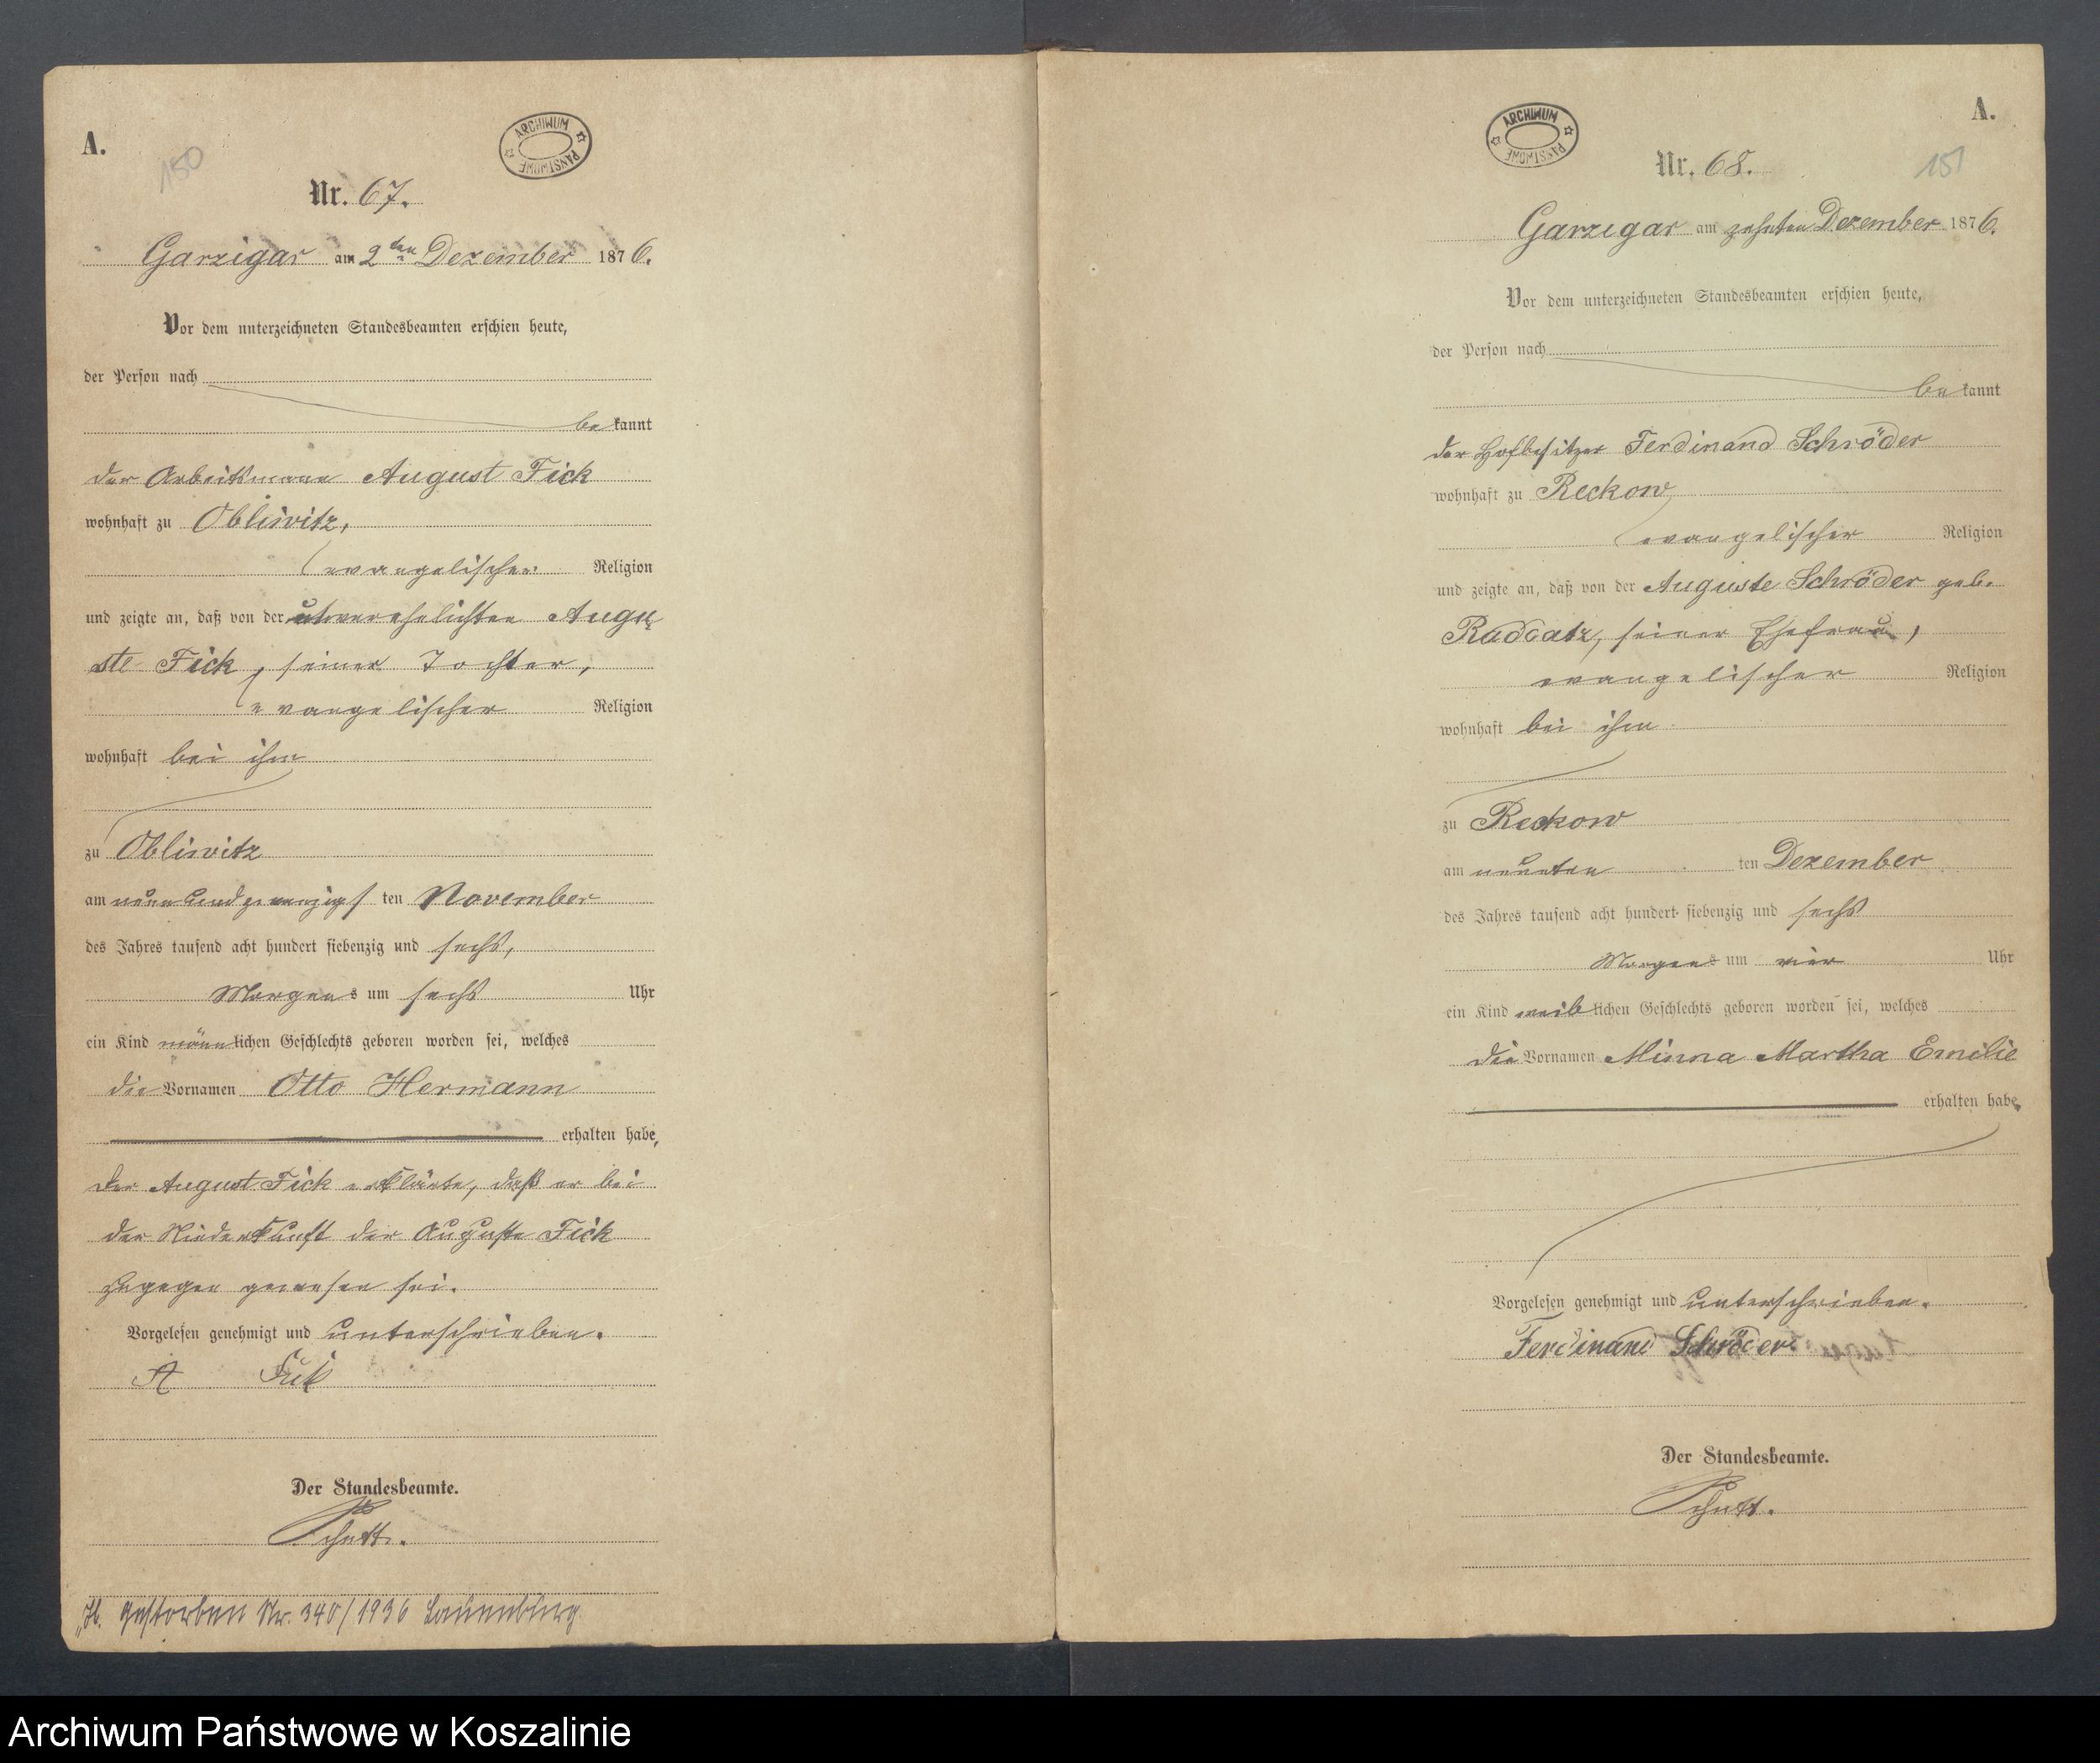 A.
150
ARCHIWUM PAŃSTWOWE
Nr. 67.
Garzigar am 2ten Dezember 1876.
Vor dem unterzeichneten Standesbeamten erschien heute,
der Person nach
bekannt
der Arbeitsmann August Fick
wohnhaft zu Obliwitz,
evangelischer Religion
und zeigte an, daß von der unverehelichten Augu-
ste Fick, seiner Tochter,
evangelischer Religion
wohnhaft bei ihm
zu Obliwitz
am neunundzwanzigsten November
des Jahres tausend acht hundert siebenzig und sechs,
Morgens um sechs Uhr
ein Kind männlichen Geschlechts geboren worden sei, welches
die Vornamen Otto Hermann
erhalten habe,
Der August Fick erklärte, daß er bei
der Niederkunft der Auguste Fick
zugegen gewesen sei.
Vorgelesen genehmigt und unterschrieben.
A Fick
Der Standesbeamte.
Schutt.
gestorben Nr. 340/1936 Lauenburg
A.
151
ARCHIWUM PAŃSTWOWE
Nr. 68.
Garzigar am zehnten Dezember 1876.
Vor dem unterzeichneten Standesbeamten erschien heute,
der Person nach
bekannt
der Hofbesitzer Ferdinand Schröder
wohnhaft zu Reckow
evangelischer Religion
und zeigte an, daß von der Auguste Schröder geb.
Raddatz, seiner Ehefrau,
evangelischer Religion
wohnhaft bei ihm
zu Reckow
am neunten ten Dezember
des Jahres tausend acht hundert siebenzig und sechs
Morgens um vier Uhr
ein Kind weiblichen Geschlechts geboren worden sei, welches
die Vornamen Minna Martha Emilie
erhalten habe,
Vorgelesen genehmigt und unterschrieben.
Ferdinand Schröder
Der Standesbeamte.
Schutt.
Archiwum Państwowe w Koszalinie